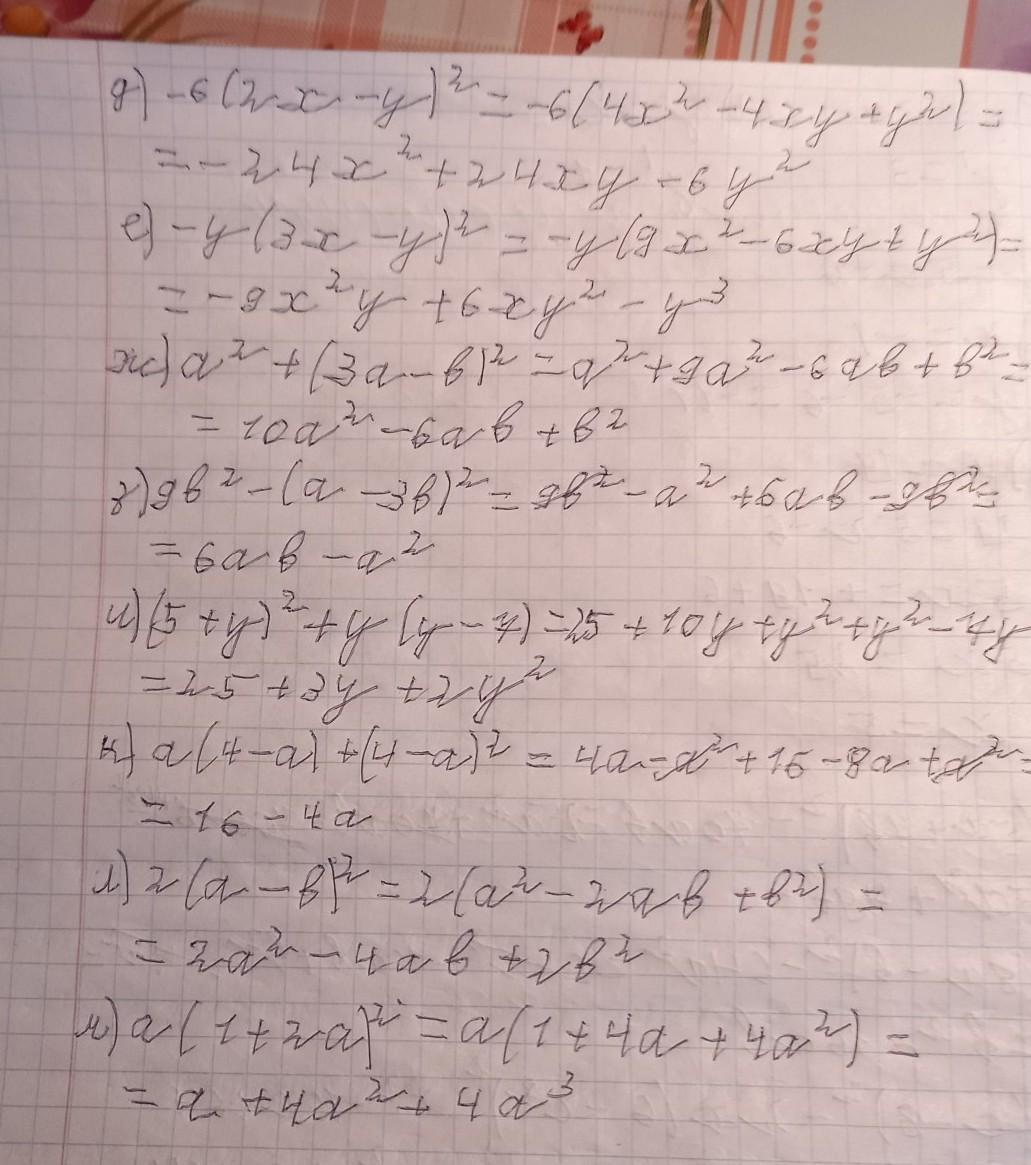 д) -6(2x-y)² = -6(4x²-4xy+y²) =
= -24x²+24xy-6y²
е) -y(3x-y)² = -y(9x²-6xy+y²) =
= -9x²y+6xy²-y³
ж) a²+(3a-b)² = a²+9a²-6ab+b² =
= 10a²-6ab+b²
з) 9b²-(a-3b)² = 9b²-a²+6ab-9b² =
= 6ab-a²
и) (5+y)²+y(y-7) = 25+10y+y²+y²-7y
= 25+3y+2y²
к) a(4-a)+(4-a)² = 4a-a²+16-8a+a² =
= 16-4a
л) 2(a-b)² = 2(a²-2ab+b²) =
= 2a²-4ab+2b²
м) a(1+2a)² = a(1+4a+4a²) =
= a+4a²+4a³